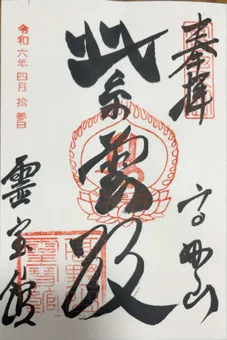 奉拝
高野山
紫雲殿
霊宝館
令和六年四月拾壱日